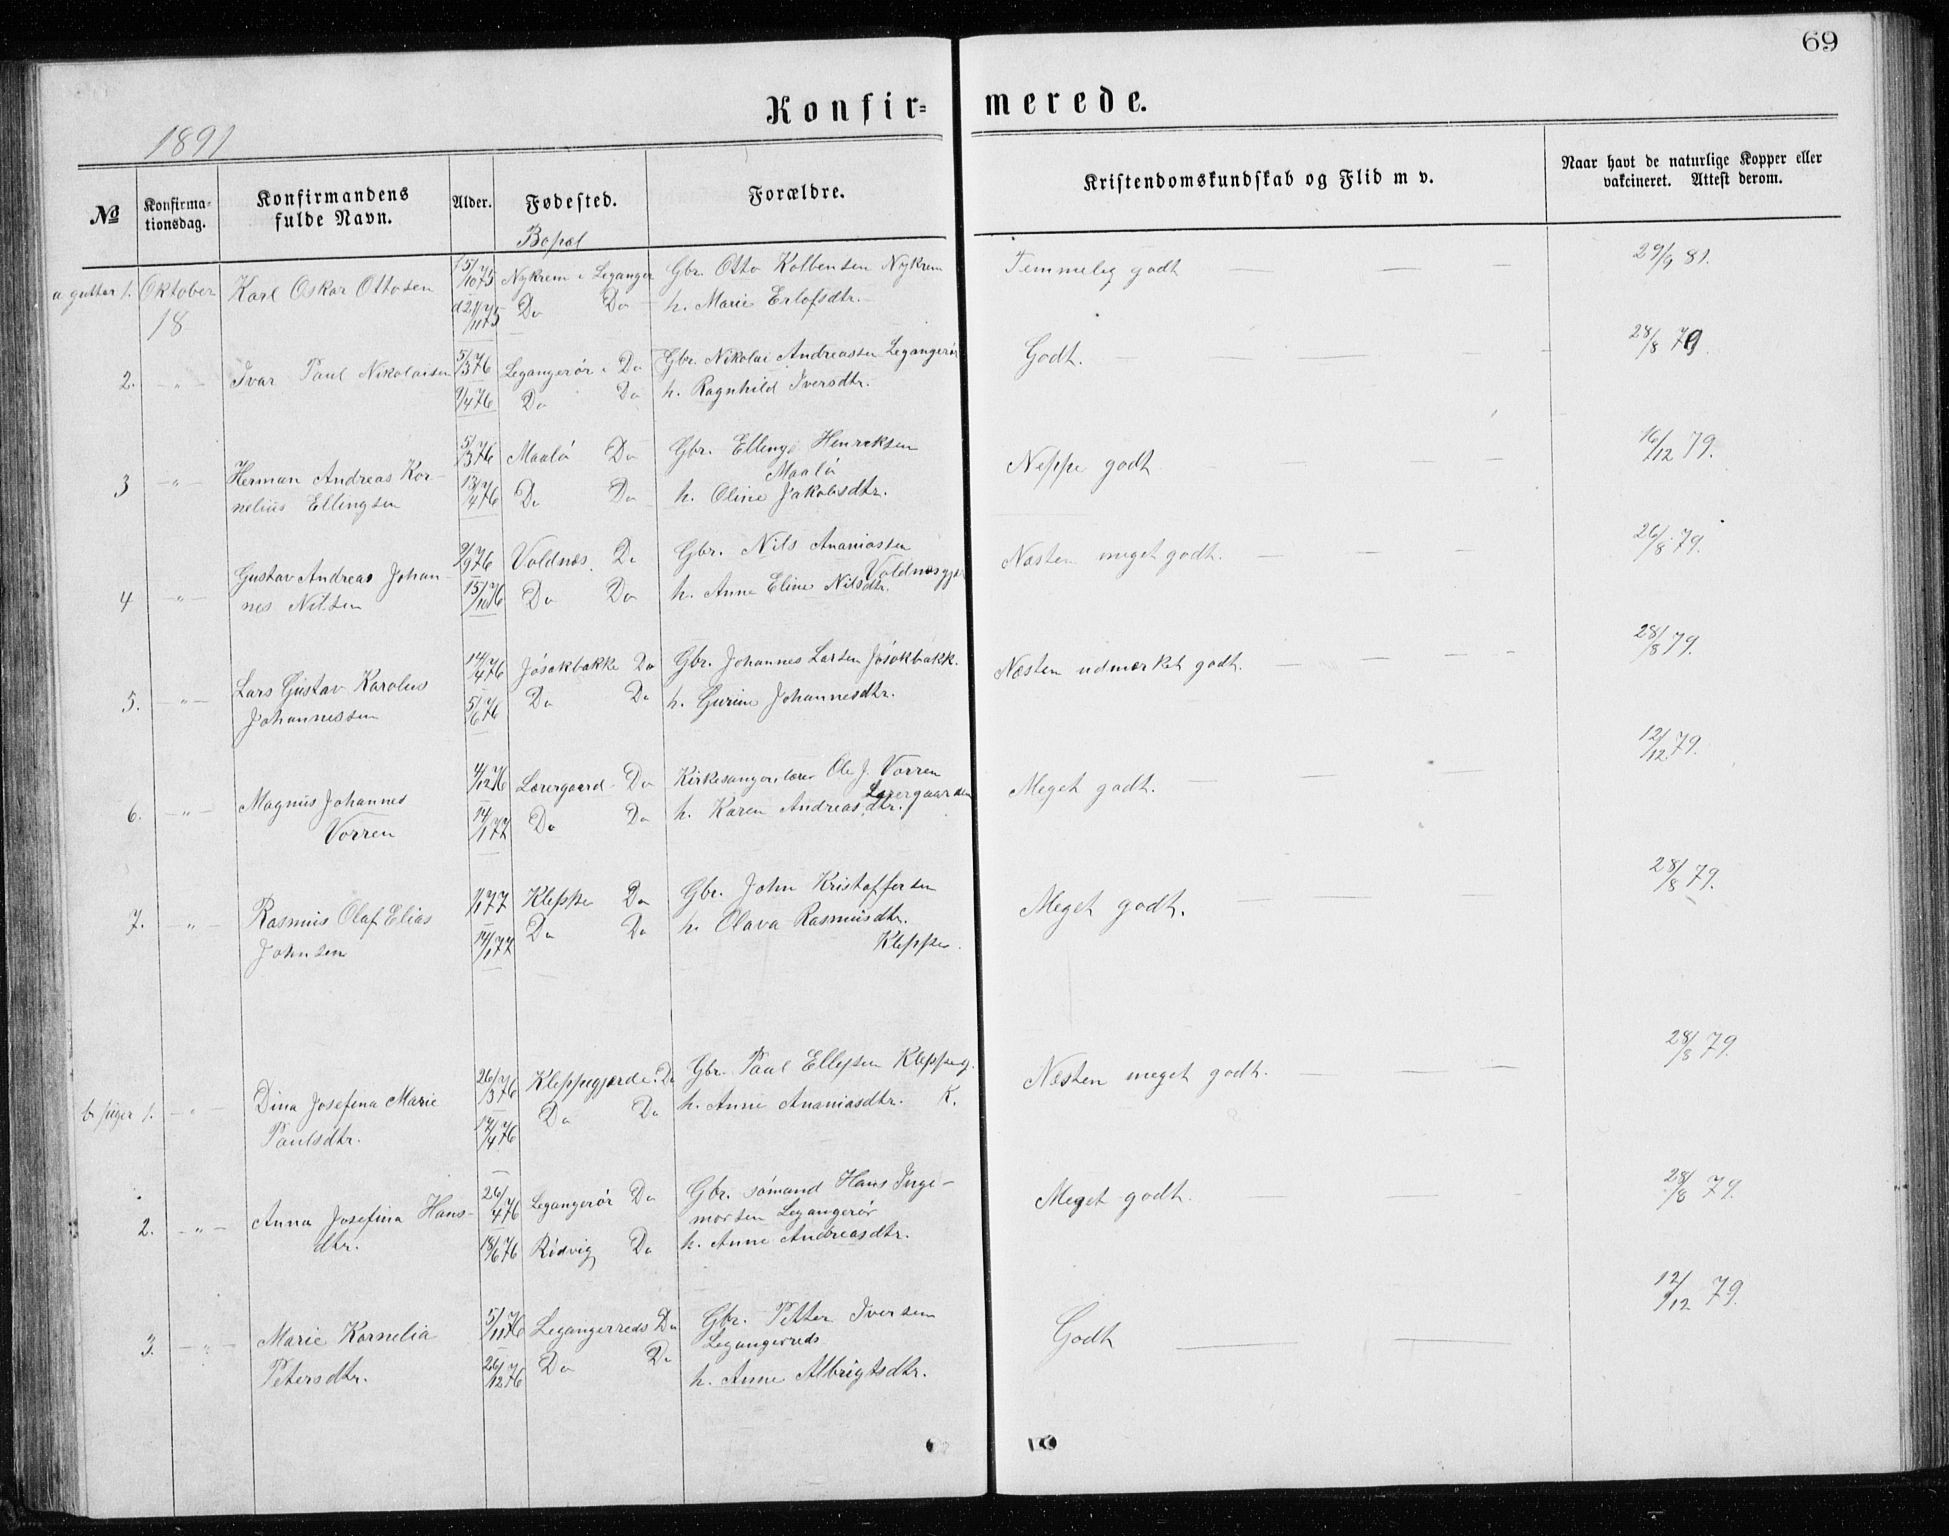 69
Konfir= merede.
1891
No Konfirma-tionsdag. Konfirmandens fulde Navn. Alder. Fødested. Forældre. Kristendomskundskab og Flid m v. Naar havt de naturlige Kopper eller vakcineret. Attest derom.
Bopæl
a gutter 1. Oktober Karl Oskar Ottosen 15/10 75 Nykrem i Leganger Gbr. Otto Kolbensen Nykrem Temmelig godt 29/9 81.
18 d 21/11 75 Do Do h. Marie Erlofsdtr.
2. " Ivar Paul Nikolaisen 5/3 76 Legangerør i Do Gbr. Nikolai Andreassen Legangerør Godt. 28/8 79.
9/4 76 Do Do h. Ragnhild Iversdtr.
3 " Herman Andreas Kor- 5/3 76 Maalø Do Gbr. Elling Henriksen Neppe godt 16/12 79.
Maalø
nelius Ellingsen 13/4 76 Do Do h. Oline Jakobsdtr.
4 " Gustav Andreas Johan- 9/9 76 Voldnæs. Do Gbr. Nils Ananiassen Næsten meget godt. 26/8 79.
Voldnæsgjær
nes Nilsen 15/10 76 Do Do h. Anne Eline Nilsdtr.
5. " Lars Gustav Karolus 14/4 76 Jøsokbakke Do Gbr. Johannes Larsen Jøsokbakk. Næsten udmærket godt. 28/8 79.
Johannessen 5/6 76 Do Do h. Gurine Johannesdtr.
6. " Magnus Johannes 4/12 76 Lærergaard Do Kirkesanger lærer Ole J. Vorren Meget godt. 12/12 79.
Lærergaarden
Vorren 14/1 77 Do Do h. Karen Andreasdtr.
7. " Rasmus Olaf Elias 1/1 77 Kleppe Do Gbr. John Kristoffersen Meget godt. 28/8 79.
Johnsen 14/1 77 Do Do h. Olava Rasmusdtr.
Kleppe.
b piger 1. " Dina Josefina Marie 26/3 76 Kleppegjærde. Do Gbr. Paul Ellefsen Kleppeg. Næsten meget godt. 28/8 79.
Paulsdtr. 17/4 76 Do Do h. Anne Ananiasdtr. K.
2. " Anna Josefina Hans- 26/4 76 Legangerør Do Gbr. sømand Hans Inge- Meget godt. 28/8 79.
morsen Legangerør
dtr. 18/6 76 Rødvig Do h. Anne Andreasdtr.
3. " Marie Kornelia 5/11 76 Legangerreds Do Gbr. Petter Iversen Godt 12/12 79.
Legangerreds
Petersdtr. 26/12 76 Do Do h. Anne Albrigtsdtr.